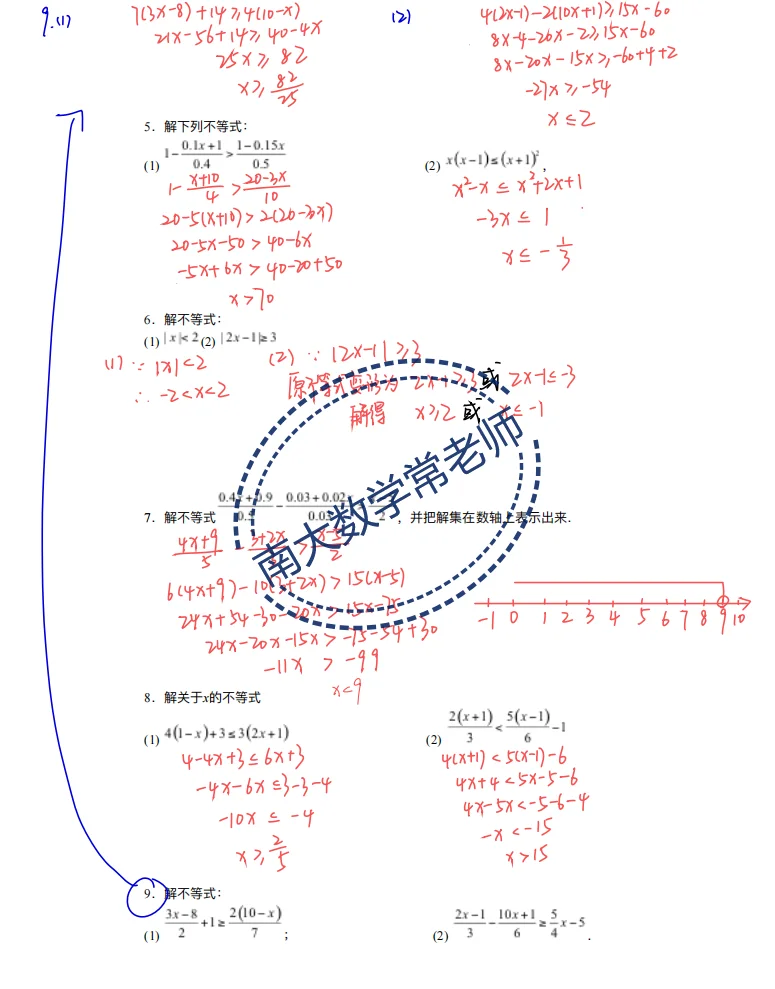 9.(1)
7(3x-8)+14≥4(10-x)
21x-56+14≥40-4x
25x≥82
x≥82/25
(2)
4(2x-1)-2(10x+1)≥15x-60
8x-4-20x-2≥15x-60
8x-20x-15x≥-60+4+2
-27x≥-54
x≤2
5．解下列不等式：
(1) 1-(0.1x+1)/0.4>(1-0.15x)/0.5
1-(x+10)/4>(20-3x)/10
20-5(x+10)>2(20-3x)
20-5x-50>40-6x
-5x+6x>40-20+50
x>70
(2) x(x-1)≤(x+1)²，
x²-x≤x²+2x+1
-3x≤1
x≤-1/3
6．解不等式：
(1) |x|<2 (2) |2x-1|≥3
(1) ∵ |x|<2
∴ -2<x<2
(2) ∵ |2x-1|≥3
原不等式变形为 2x-1≥3 或 2x-1≤-3
解得 x≥2 或 x≤-1
南大数学常老师
7．解不等式 (0.4x+0.9)/0.5-(0.03+0.02x)/0.03 2，并把解集在数轴上表示出来．
(4x+9)/5-(3+2x)/ >(x-5)/2
6(4x+9)-10(3+2x)>15(x-5)
24x+54-30-20x>15x-75
24x-20x-15x>-75-54+30
-11x>-99
x<9
-1 0 1 2 3 4 5 6 7 8 9 10
8．解关于x的不等式
(1) 4(1-x)+3≤3(2x+1)
4-4x+3≤6x+3
-4x-6x≤3-3-4
-10x≤-4
x≥2/5
(2) 2(x+1)/3<5(x-1)/6-1
4(x+1)<5(x-1)-6
4x+4<5x-5-6
4x-5x<-5-6-4
-x<-15
x>15
9．解不等式：
(1) (3x-8)/2+1≥2(10-x)/7；
(2) (2x-1)/3-(10x+1)/6≥5/4x-5．